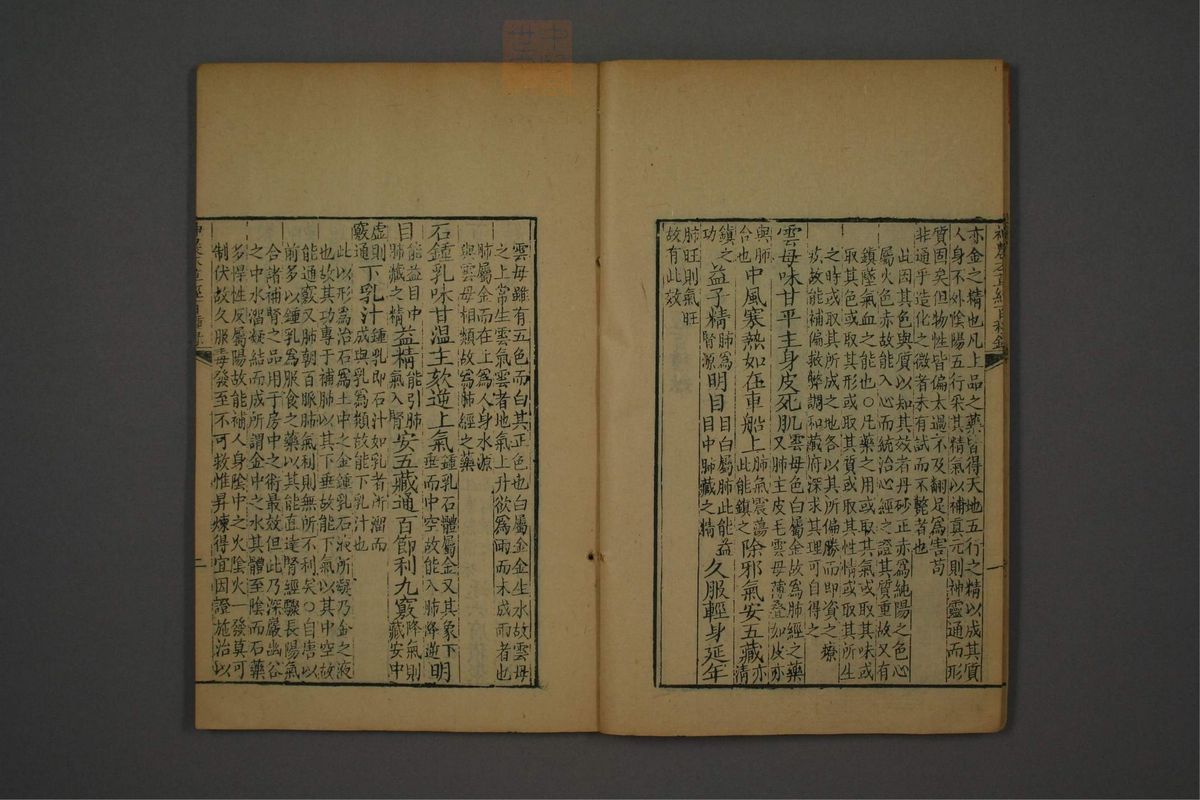 神農本草經百種錄
一
亦金之精也凡上品之藥皆得天地五行之精以成其質
人身不外陰陽五行采其精氣以補真元則神靈通而形
質固矣但物性皆偏太過不及翻足爲害苟
非通乎造化之微者未有試而不斃者也
此因其色與質以知其效者丹砂正赤爲純陽之色心
屬火色赤故能入心而統治心經之證其質重故又有
鎮墜氣血之能也○凡藥之用或取其氣或取其味或
取其色或取其形或取其質或取其性情或取其所生
之時或取其所成之地各以其所偏勝而即資之療
疾故能補偏救弊調和藏府深求其理可自得之
雲母味甘平主身皮死肌雲母色白屬金故爲肺經之藥又肺主皮毛雲母薄疊如皮亦
與肺合也中風寒熱如在車船上肺氣震蕩此能鎮之除邪氣安五藏亦清
鎮之功益子精肺爲腎源明目目白屬肺此能益目中肺藏之精久服輕身延年
肺旺則氣旺故有此效
雲母雖有五色而白其正色也白屬金金生水故雲母
之上常生雲氣雲者地氣上升欲爲雨而未成雨者也
肺屬金而在上爲人身水源
與雲母相類故爲肺經之藥
石鍾乳味甘溫主欬逆上氣鍾乳石體屬金又其象下垂而中空故能入肺降逆明
目能益目中肺藏之精益精能引肺氣入腎安五藏通百節利九竅降氣則藏安中
虛則竅通下乳汁鍾乳即石汁如乳者所溜而成與乳爲類故能下乳汁也
此以形爲治石爲土中之金鍾乳石液所凝乃金之液
也故其功專于補肺以其下垂故能下氣以其中空故
能通竅又肺朝百脈肺氣利則無所不利矣○自唐以
前多以鍾乳爲服食之藥以其能直達腎經驟長陽氣
合諸補腎之品用于房中之術最效但此乃深巖幽谷
之中水溜凝結而成所謂金中之水其體至陰而石藥
多悍性反屬陽故能補人身陰中之火陰火一發莫可
制伏故久服毒發至不可救惟昇煉得宜因證施治以
神農本草經百種錄
二